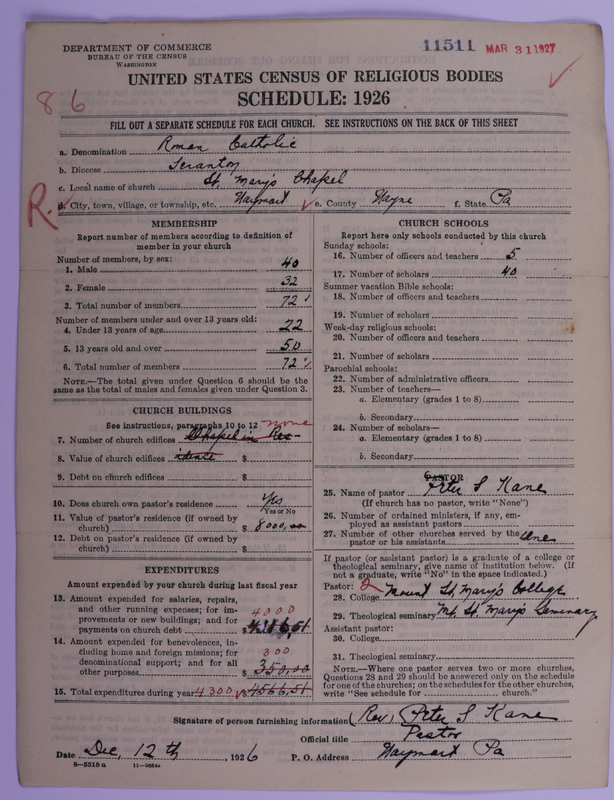 DEPARTMENT OF COMMERCE
BUREAU OF THE CENSUS
WASHINGTON
11511 MAR 31 1927
UNITED STATES CENSUS OF RELIGIOUS BODIES
SCHEDULE: 1926
8 6
FILL OUT A SEPARATE SCHEDULE FOR EACH CHURCH. SEE INSTRUCTIONS ON THE BACK OF THIS SHEET
a. Denomination Roman Catholic
b. Diocese Scranton
c. Local name of church St. Mary's Chapel
R. d. City, town, village, or township, etc. Waymart e. County Wayne f. State Pa
MEMBERSHIP
Report number of members according to definition of
member in your church
Number of members, by sex:
1. Male 40
2. Female 32
3. Total number of members 72
Number of members under and over 13 years old:
4. Under 13 years of age 22
5. 13 years old and over 50
6. Total number of members 72
NOTE.—The total given under Question 6 should be the
same as the total of males and females given under Question 3.
CHURCH BUILDINGS
See instructions, paragraphs 10 to 12 none
7. Number of church edifices Chapel in Res-
8. Value of church edifices idence $
9. Debt on church edifices $
10. Does church own pastor's residence Yes
Yes or No
11. Value of pastor's residence (if owned by
church) $ 8000,00
12. Debt on pastor's residence (if owned by
church) $
EXPENDITURES
Amount expended by your church during last fiscal year
13. Amount expended for salaries, repairs,
and other running expenses; for im-
provements or new buildings; and for 4000
payments on church debt $ 4216,51
14. Amount expended for benevolences, in-
cluding home and foreign missions; for
denominational support; and for all 300
other purposes $ 350,00
15. Total expenditures during year 4300 $ 4566,51
CHURCH SCHOOLS
Report here only schools conducted by this church
Sunday schools:
16. Number of officers and teachers 5
17. Number of scholars 40
Summer vacation Bible schools:
18. Number of officers and teachers
19. Number of scholars
Week-day religious schools:
20. Number of officers and teachers
21. Number of scholars
Parochial schools:
22. Number of administrative officers
23. Number of teachers—
a. Elementary (grades 1 to 8)
b. Secondary
24. Number of scholars—
a. Elementary (grades 1 to 8)
b. Secondary
PASTOR
25. Name of pastor Peter S Kane
(If church has no pastor, write "None")
26. Number of ordained ministers, if any, em-
ployed as assistant pastors
27. Number of other churches served by the
pastor or his assistants One
If pastor (or assistant pastor) is a graduate of a college or
theological seminary, give name of institution below. (If
not a graduate, write "No" in the space indicated.)
Pastor: 2
28. College Mount St Mary's College
29. Theological seminary Mt. St. Mary's Seminary
Assistant pastor:
30. College
31. Theological seminary
NOTE.—Where one pastor serves two or more churches,
Questions 28 and 29 should be answered only on the schedule
for one of the churches; on the schedules for the other churches,
write "See schedule for church."
Signature of person furnishing information (Rev) Peter S Kane
Official title Pastor
Date Dec, 12th, 1926 P. O. Address Waymart Pa
8—5518 a